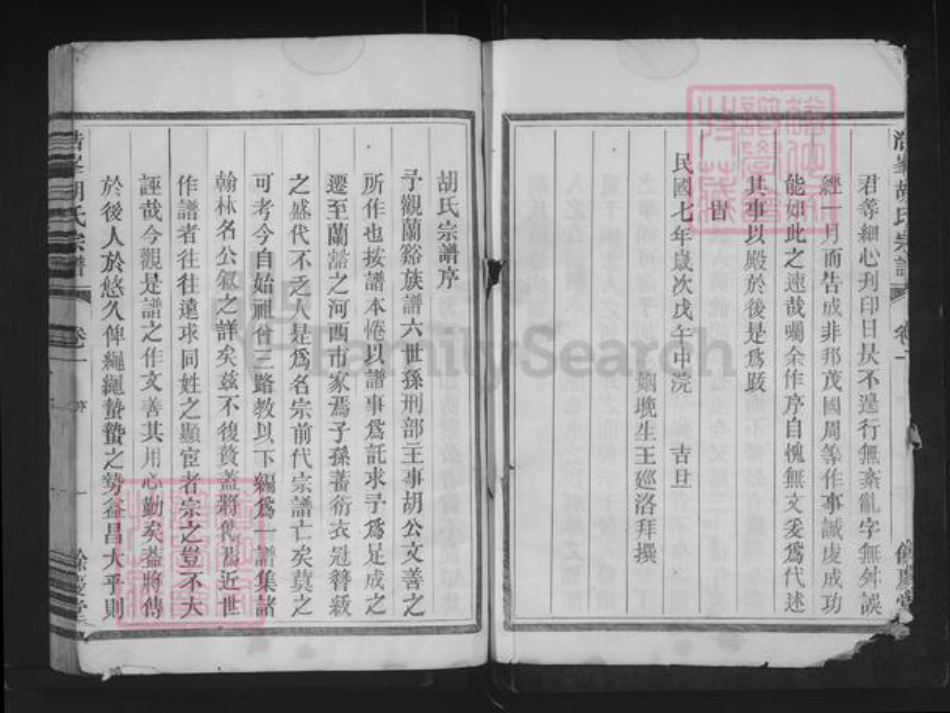 君等細心刋印日昃不遑行無紊亂字無舛誤
經一月而告成非邦茂國周等作事誠虔成功
能如此之速哉囑余作序自愧無文爰爲代述
其事以殿於後是爲跋
旹
民國七年歲次戊午中浣 吉旦
姻晚生王廵洛拜撰
胡氏宗譜 卷一
胡氏宗譜序
予觀蘭谿族譜六世孫刑部主事胡公文善之
所作也按譜本惓以譜事爲託求予爲足成之
遷至蘭谿之河西市家焉子孫蕃衍衣冠簪紱
之盛代不乏人是爲名宗前代宗譜亡矣莫之
可考今自始祖曾三路教以下編爲一譜集諸
翰林名公叙之詳矣兹不復贅蓋將代褐近世
作譜者往往遠求同姓之顯宦者宗之豈不大
誣哉今觀是譜之作文善其用心勤矣葢將傳
於後人於悠久俾繩繩蟄蟄之勢益昌大乎則
胡氏宗譜 卷一 序 一 餘慶堂
FamilySearch